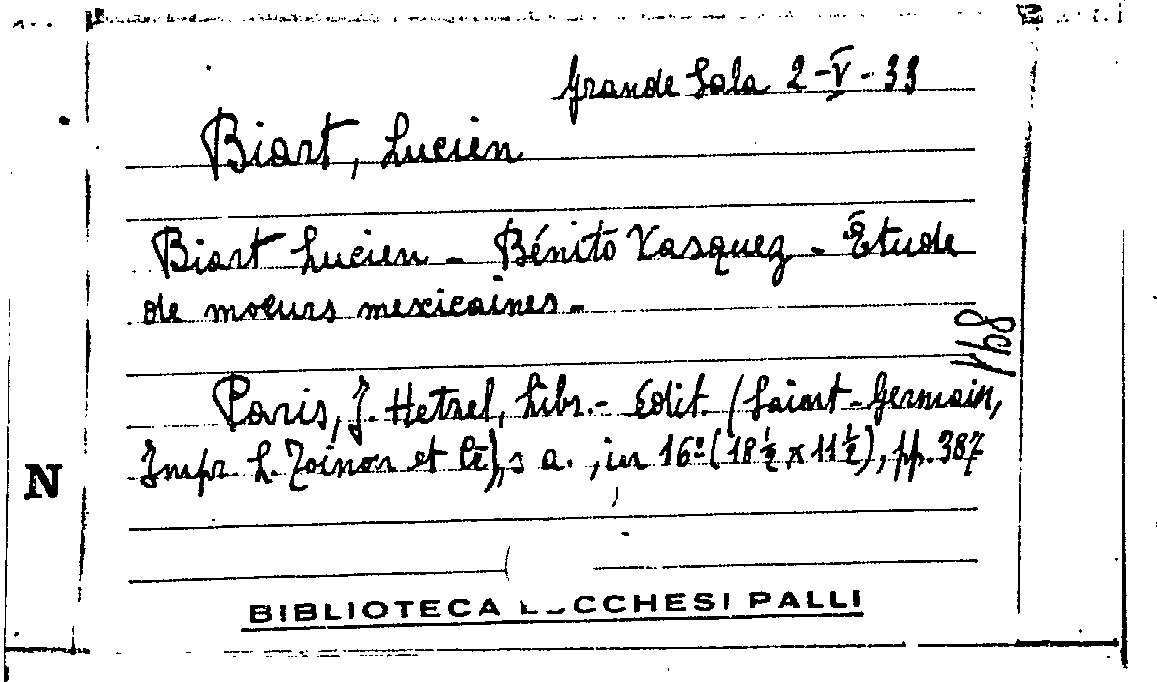 Grande Sala 2-V-33
Biart, Lucien
Biart Lucien - Bénito Vasquez - Étude
de moeurs mexicaines -
1168
Paris, J. Hetzel, Libr. - Édit. (Saint-Germain,
Impr. L. Toinon et Cie), s a., in 16º (18½ x 11½), pp. 387
N
BIBLIOTECA LUCCHESI PALLI